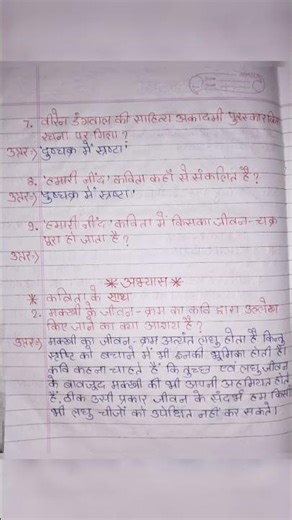 7. वीरेन डंगवाल की साहित्य अकादमी पुरस्कार किस
रचना पर मिला ?
उत्तर:-) 'दुष्चक्र में स्रष्टा'
8. 'हमारी नींद' कविता कहाँ से संकलित है ?
उत्तर:-) 'दुष्चक्र में स्रष्टा'
9. 'हमारी नींद' कविता में किसका जीवन - चक्र
पूरा हो जाता है ?
उत्तर:-)
* अभ्यास *
* कविता के साथ
2. मक्खी के जीवन - क्रम का कवि द्वारा उल्लेख
किए जाने का क्या आशय है ?
उत्तर:-) मक्खी का जीवन - क्रम अत्यंत लघु होता है किन्तु
सृष्टि को बचाने में भी इनकी भूमिका होती है।
कवि कहना चाहते हैं कि तुच्छ एवं लघु जीवन
के बावजूद मक्खी की भी अपनी अहमियत होती
है, ठीक उसी प्रकार जीवन के संदर्भ हम किसी
भी लघु चीजों को उपेक्षित नहीं कर सकते।